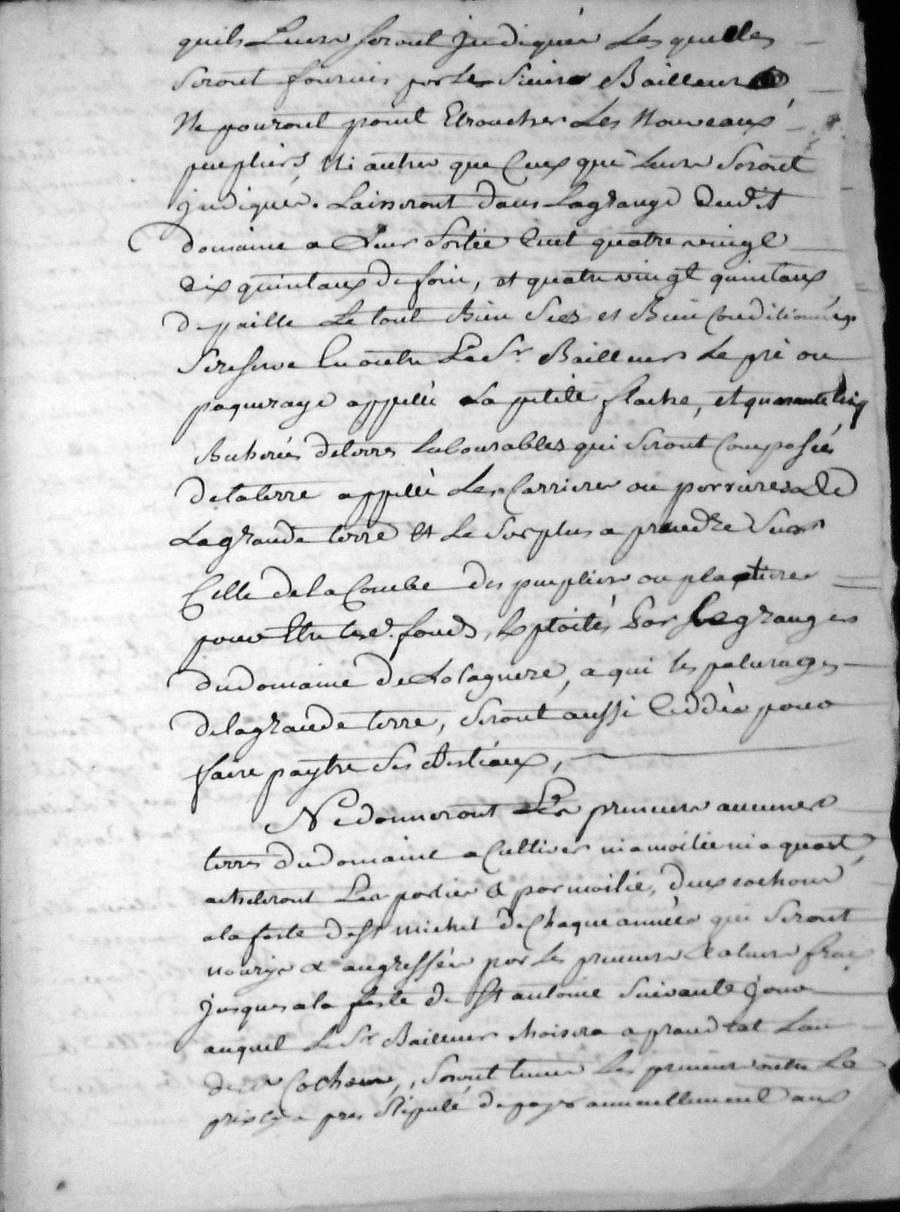 quils Leurs seront judiqués Lesquelles
seront fournis par Les Sieurs Bailleurs
Ne pouront point Ebrancher Les Nouveaux
pupliers, Ni autres que Ceux qui Leurs seront
judiqués. Laisseront dans Lagrange dudit
domaine a Leur Sortie Cent quatre vingt
dix quintaux de foin, et quatre vingt quintaux
de paille Le tout Bien Secs et Bien Conditionnés
Se reserve En outre Le Sr. Bailleurs Le pré ou
paquerage appellé La petite flache, et quarante Cinq
Bicherées deterres Labourables qui seront Composées
delaterre appellé Les Carrieres ou de
Lagrande terre et Le Surplus a prendre Sur
Celle de la Combe des pupliers ou
pour Etre lesd. fonds, Exploités par Le grangers
dudomaine de , a qui les paturages
delagrande terre, seront aussi Ceddés pour
faire paytre Ses Bestiaux,
Ne donneront Les preneurs aucunes
terres dudomaine a Cultiver ni amoitié ni a quart
acheteront Les parties & par moitié, deux cochons
ala feste de St michel de Chaque année qui seront
nouris & angressés par Les preneurs a leurs frais
jusques ala feste de St antoine Suivante jour
auquel Le Sr. Bailleurs Choisira a prandra L'un
desd. Cochons, Seront tenus Les preneurs outre Le
prix cy a pres Stipulé de payer annuellement aux